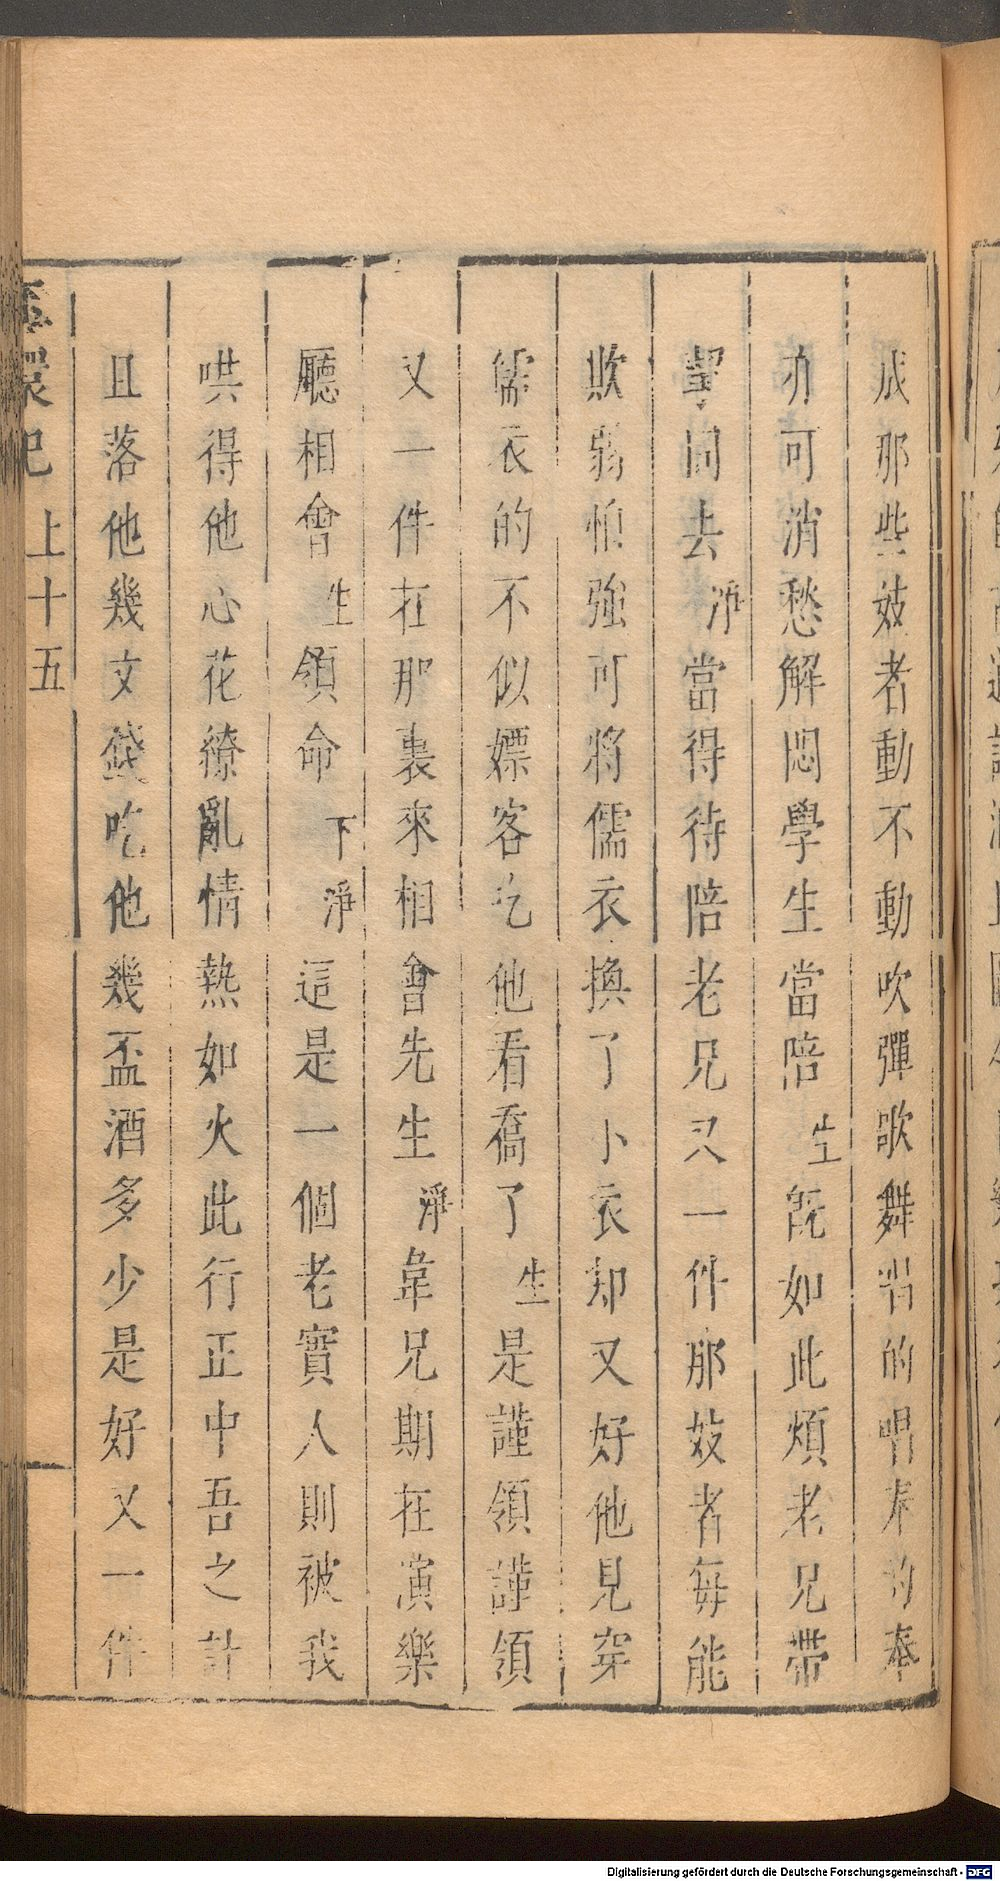 成那些妓者動不動吹彈歌舞唱的唱奉的奉
亦可消愁解悶學生當陪生既如此煩老兄帶
挈同去淨當得待陪老兄只一件那妓者每能
欺弱怕強可將儒衣換了小衣却又好他見穿
儒衣的不似嫖客乞他看喬了生是謹領謹領
又一件在那裏來相會先生淨韋兄期在演樂
廳相會生領命下淨這是一個老實人則被我
哄得他心花繚亂情熱如火此行正中吾之計
且落他幾文錢吃他幾盃酒多少是好又一件
環記 上十五
Digitalisierung gefördert durch die Deutsche Forschungsgemeinschaft - DFG